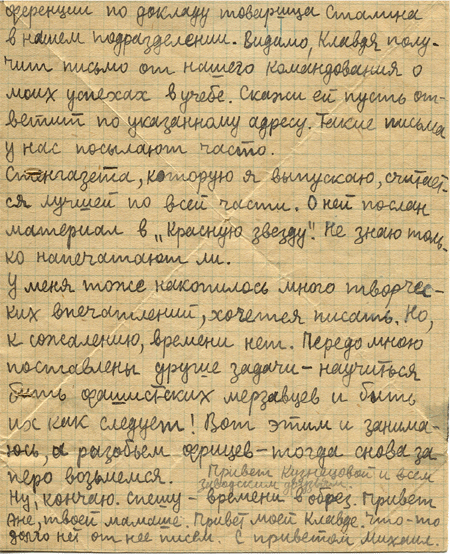 ференции по докладу товарища Сталина
в нашем подразделении. Видимо, Клавдя полу-
чит письмо от нашего командования о
моих успехах в учебе. Скажи ей пусть от-
ветит по указанному адресу. Такие письма
у нас посылают часто.
Стенгазета, которую я выпускаю, считает-
ся лучшей по всей части. О ней послан
материал в „Красную звезду". Не знаю толь-
ко напечатают ли.
У меня тоже накопилось много творчес-
ких впечатлений, хочется писать. Но,
к сожалению, времени нет. Передо мною
поставлены другие задачи - научиться
бить фашистских мерзавцев и бить
их как следует! Вот этим и занима-
юсь, а разобьем фрицев - тогда снова за
перо возьмемся. Привет Кузнецовой и всем
городским друзьям.
Ну, кончаю. Спешу - времени в обрез. Привет
Ане, твоей мамаше. Привет моей Клавде. Что-то
долго нет от нее писем. С приветом Михаил.